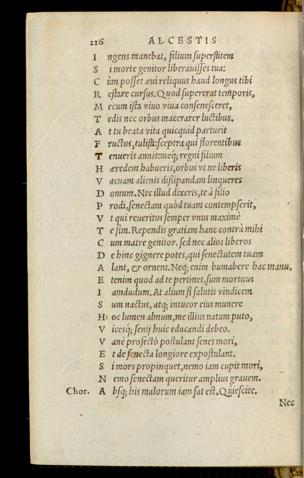 226 ALCESTIS
I ngens manebat, filium superstitem
S i morte genitor liberauisses tua:
C ùm posset æui reliquus haud longus tibi
R estare cursus. Quod supererat temporis,
M ecum ista viuo viua consenesceret,
T edis nec orbus macerarer luctibus.
A t tu beata vita quicquid parturit
F ructus, tulisti: sceptra qui florentibus
T enueris annis: meq; regni filium
H æredem habueris, orbus vt ne liberis
V acuam alienis dissipandam linqueres
D omum. Nec illud dixeris, te à filio
P rodi, senectam quòd tuam contempserit,
V t qui reueritus semper vnus maximè
T e sim. Rependis gratiam hanc contrà mihi
C um matre genitor. sed nec alios liberos
D ehinc gignere potes, qui senectutem tuam
A lant, & ornent. Neq; enim humabere hac manu,
E tenim quod ad te pertinet, sum mortuus
I amdudum. At alium si salutis vindicem
S um nactus, atq; intueor eius munere
H oc lumen almum, me illius natum puto,
V icesq; senij huic educandi debeo.
V anè profectò postulant senes mori,
E t de senecta longiore expostulant.
S i mors propinquet, nemo iam cupit mori,
N emo senectam queritur amplius grauem.
Chor. A bsq; his malorum iam sat est. Quiescite.
Nec